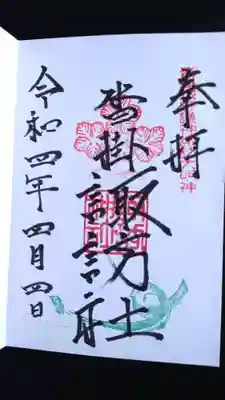 奉拝
沓掛諏訪社
令和四年四月四日